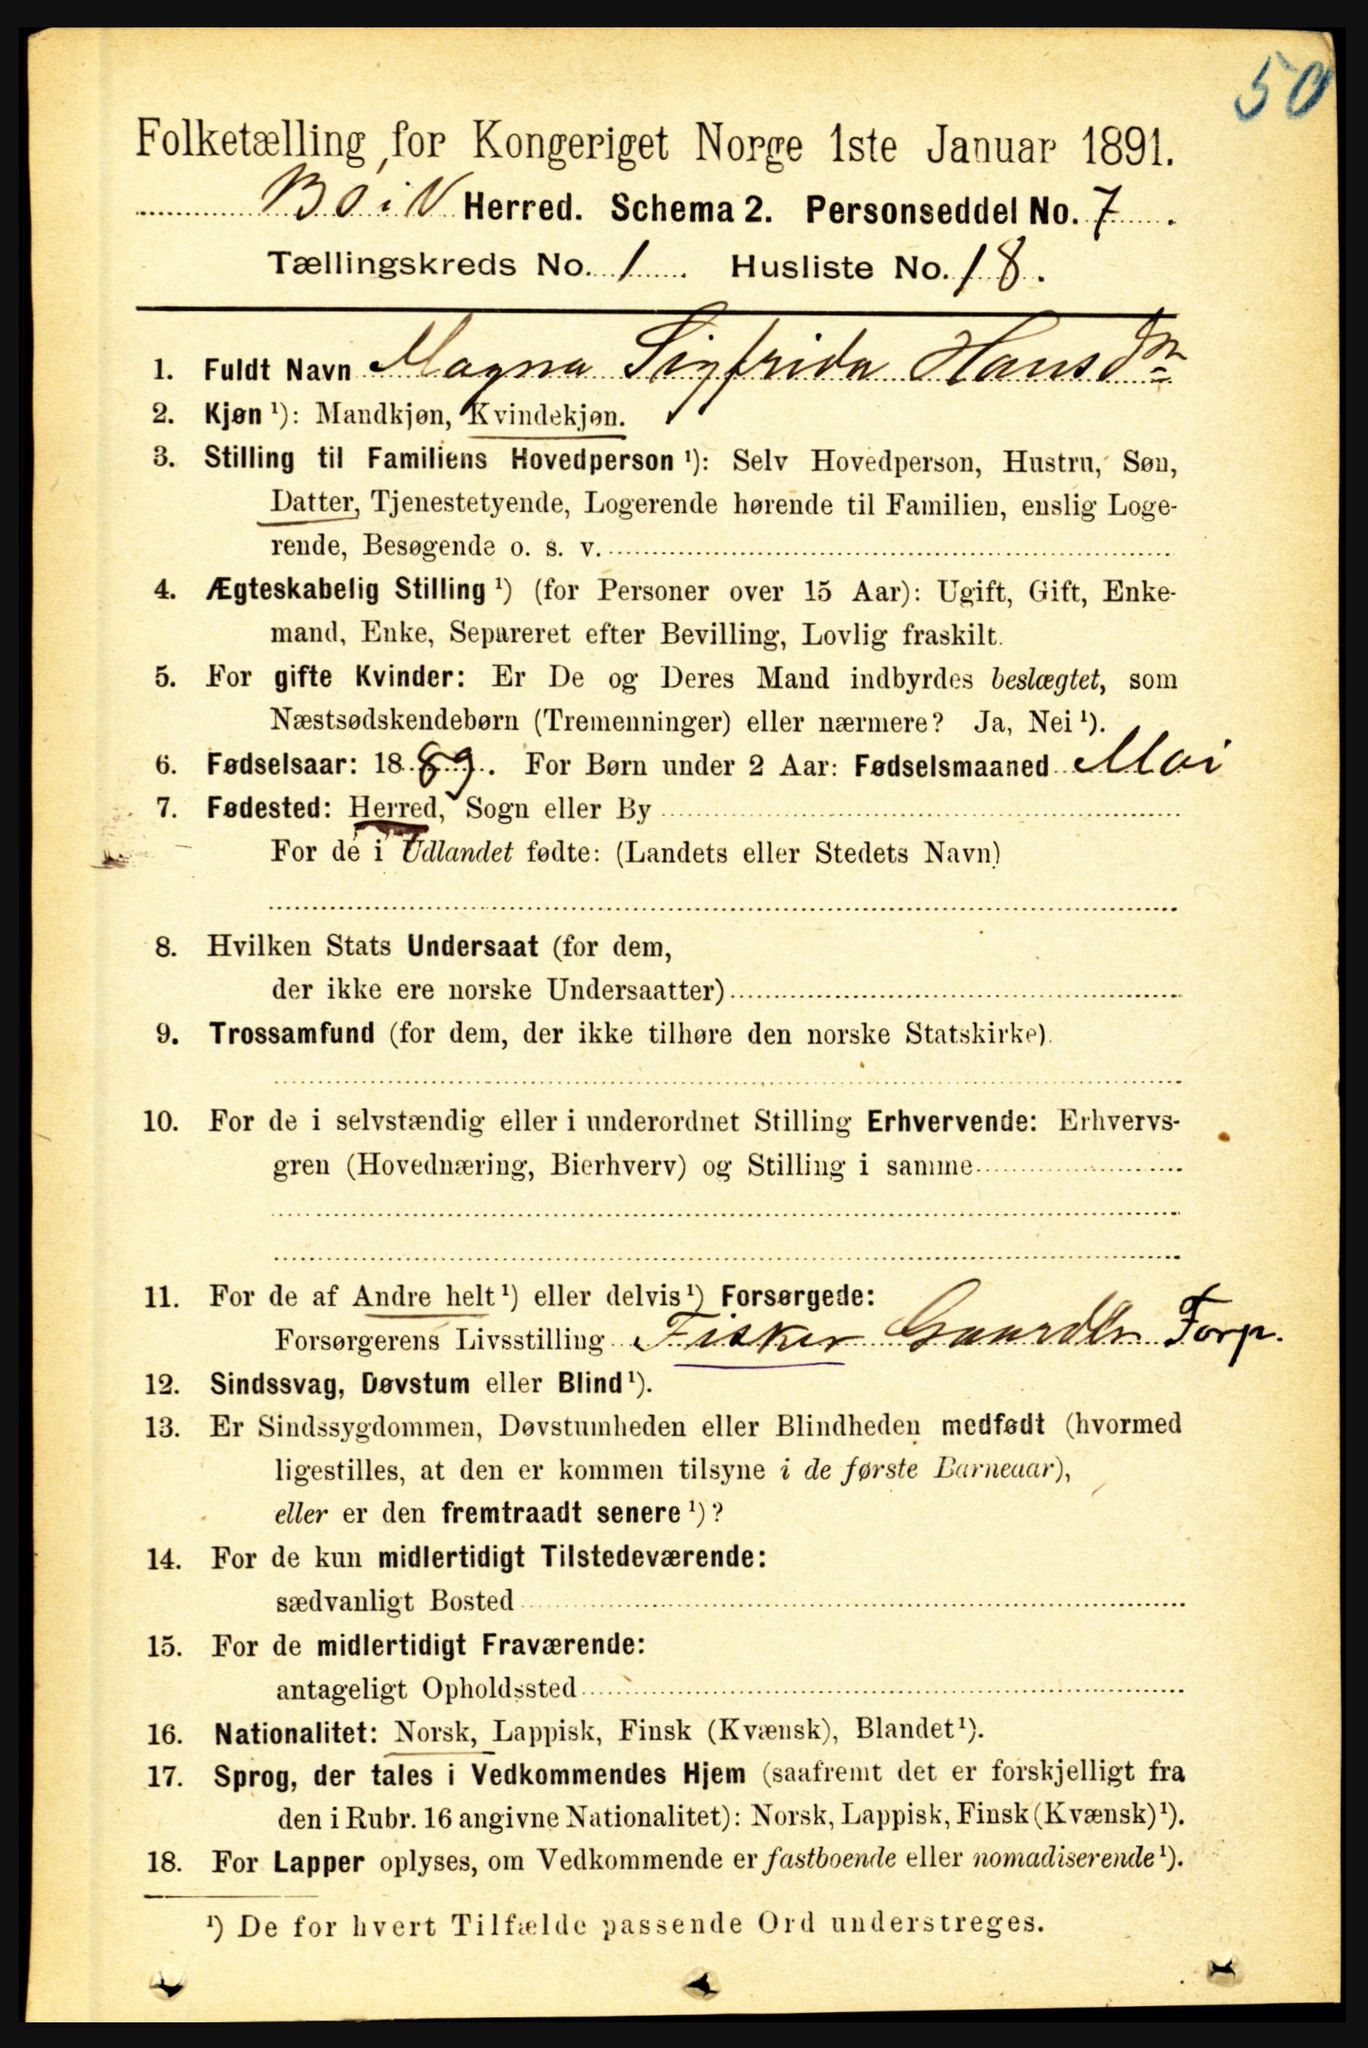 50
Folketælling for Kongeriget Norge 1ste Januar 1891.
Bø i V Herred. Schema 2. Personseddel No. 7.
Tællingskreds No. 1. Husliste No. 18.
1. Fuldt Navn Magna Sigfrida Hansdtr
2. Kjøn ¹): Mandkjøn, Kvindekjøn.
3. Stilling til Familiens Hovedperson ¹): Selv Hovedperson, Hustru, Søn,
Datter, Tjenestetyende, Logerende hørende til Familien, enslig Loge-
rende, Besøgende o. s. v.
4. Ægteskabelig Stilling ¹) (for Personer over 15 Aar): Ugift, Gift, Enke-
mand, Enke, Separeret efter Bevilling, Lovlig fraskilt.
5. For gifte Kvinder: Er De og Deres Mand indbyrdes beslægtet, som
Næstsødskendebørn (Tremenninger) eller nærmere? Ja, Nei ¹).
6. Fødselsaar: 1889. For Børn under 2 Aar: Fødselsmaaned Mai
7. Fødested: Herred, Sogn eller By
For de i Udlandet fødte: (Landets eller Stedets Navn)
8. Hvilken Stats Undersaat (for dem,
der ikke ere norske Undersaatter)
9. Trossamfund (for dem, der ikke tilhøre den norske Statskirke).
10. For de i selvstændig eller i underordnet Stilling Erhvervende: Erhvervs-
gren (Hovednæring, Bierhverv) og Stilling i samme
11. For de af Andre helt ¹) eller delvis ¹) Forsørgede:
Forsørgerens Livsstilling Fisker Gaardbr Forp.
12. Sindssvag, Døvstum eller Blind ¹).
13. Er Sindssygdommen, Døvstumheden eller Blindheden medfødt (hvormed
ligestilles, at den er kommen tilsyne i de første Barneaar),
eller er den fremtraadt senere ¹)?
14. For de kun midlertidigt Tilstedeværende:
sædvanligt Bosted
15. For de midlertidigt Fraværende:
antageligt Opholdssted
16. Nationalitet: Norsk, Lappisk, Finsk (Kvænsk), Blandet ¹).
17. Sprog, der tales i Vedkommendes Hjem (saafremt det er forskjelligt fra
den i Rubr. 16 angivne Nationalitet): Norsk, Lappisk, Finsk (Kvænsk) ¹).
18. For Lapper oplyses, om Vedkommende er fastboende eller nomadiserende ¹).
¹) De for hvert Tilfælde passende Ord understreges.